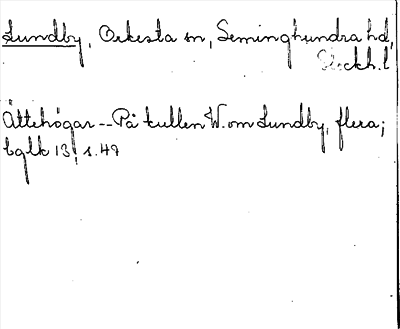 Lundby, Orkesta sn, Seminghundra hd,
Stockh. l
Ättehögar -- På kullen W. om Lundby, flera;
bglk 13, s. 49